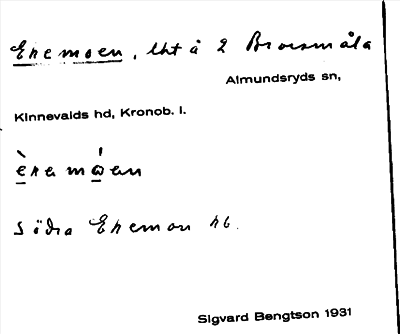 Enemoen, lht å 2 Brorsmåla
Almundsryds sn,
Kinnevalds hd, Kronob. l.
södra Enemon
Sigvard Bengtson 1931